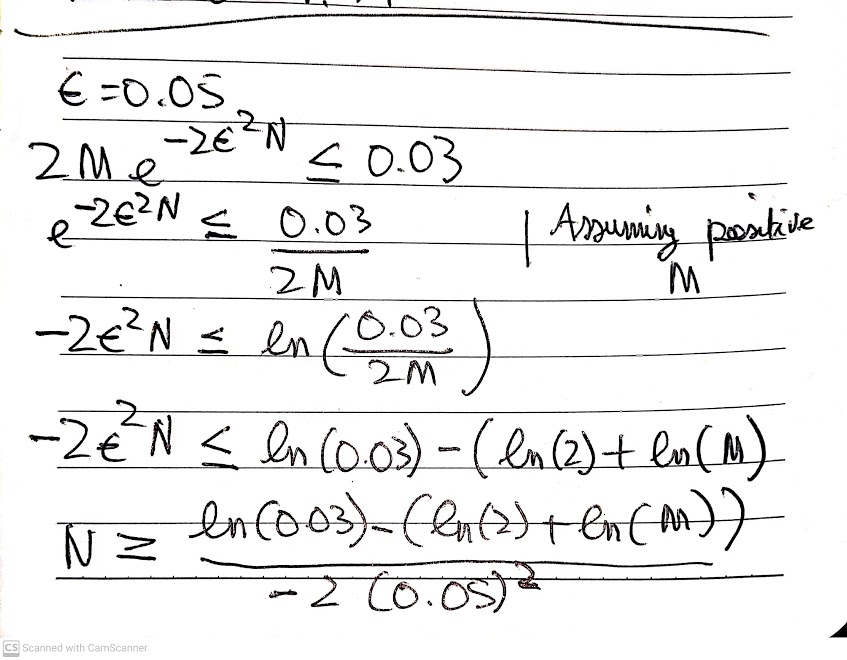 ϵ = 0.05
2 M e^{-2ϵ²N} ≤ 0.03
e^{-2ϵ²N} ≤ 0.03 / 2M | Assuming positive M
-2ϵ²N ≤ ln(0.03 / 2M)
-2ϵ²N ≤ ln(0.03) - (ln(2) + ln(M)
N ≥ ln(0.03) - (ln(2) + ln(M)) / -2(0.05)²
CS Scanned with CamScanner